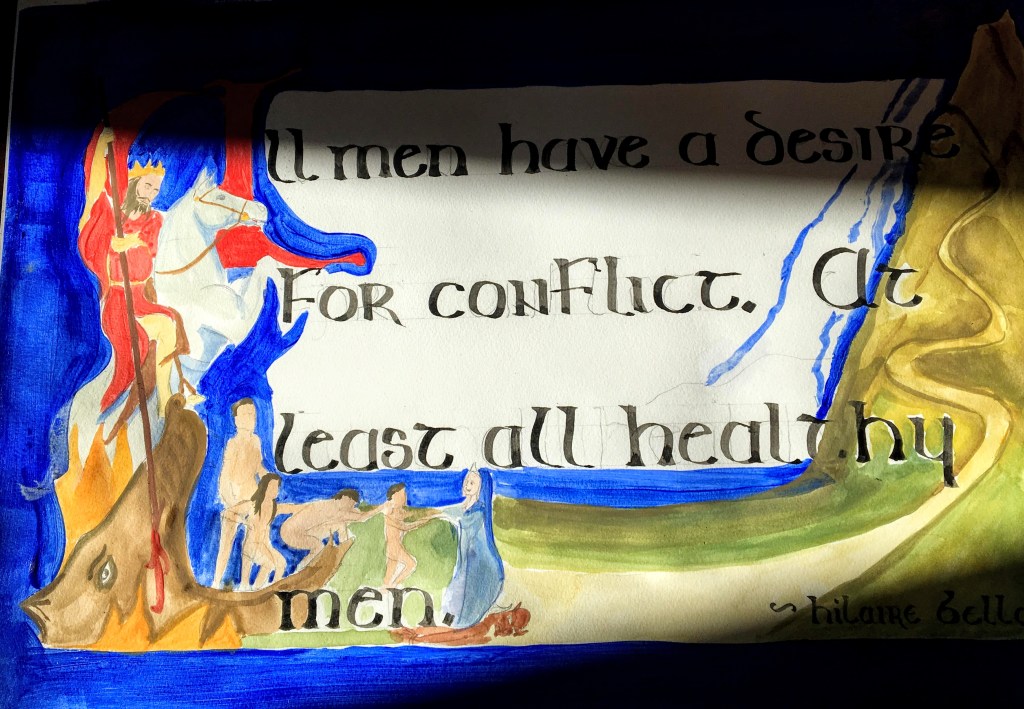 All men have a desire
for conflict. At
least all healthy
men.
~ hilaire